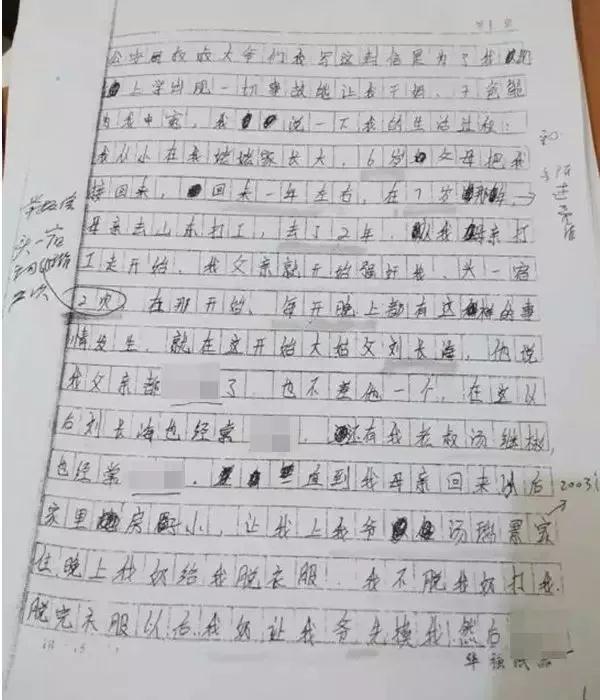 第1页
公安局 大爷们我写这封信是为了我
上学出现一切事故能让我干妈、干爸能
为我申冤,我说一下我的生活过程:
我从小在我姑姑家长大,6岁父母把我
接回来,回来一年左右,在7岁那年,
母亲去山东打工,去了2年,从我母亲打
工走开始,我父亲就开始强奸我,头一宿
2次,在那开始,每天晚上都有这种的事
情发生,就在这开始大姑父刘长海,他说
我父亲都 了,也不差他一个,在这以
后刘长海也经常 ,还有我老叔汤继彬,
也经常 , 一直到我母亲回来以后 2003
家里房子小,让我上我爷 汤瑞景家
住晚上我奶给我脱衣服,我不脱我奶打我.
脱完衣服以后,我奶让我爷先 我然后
头一宿
2次